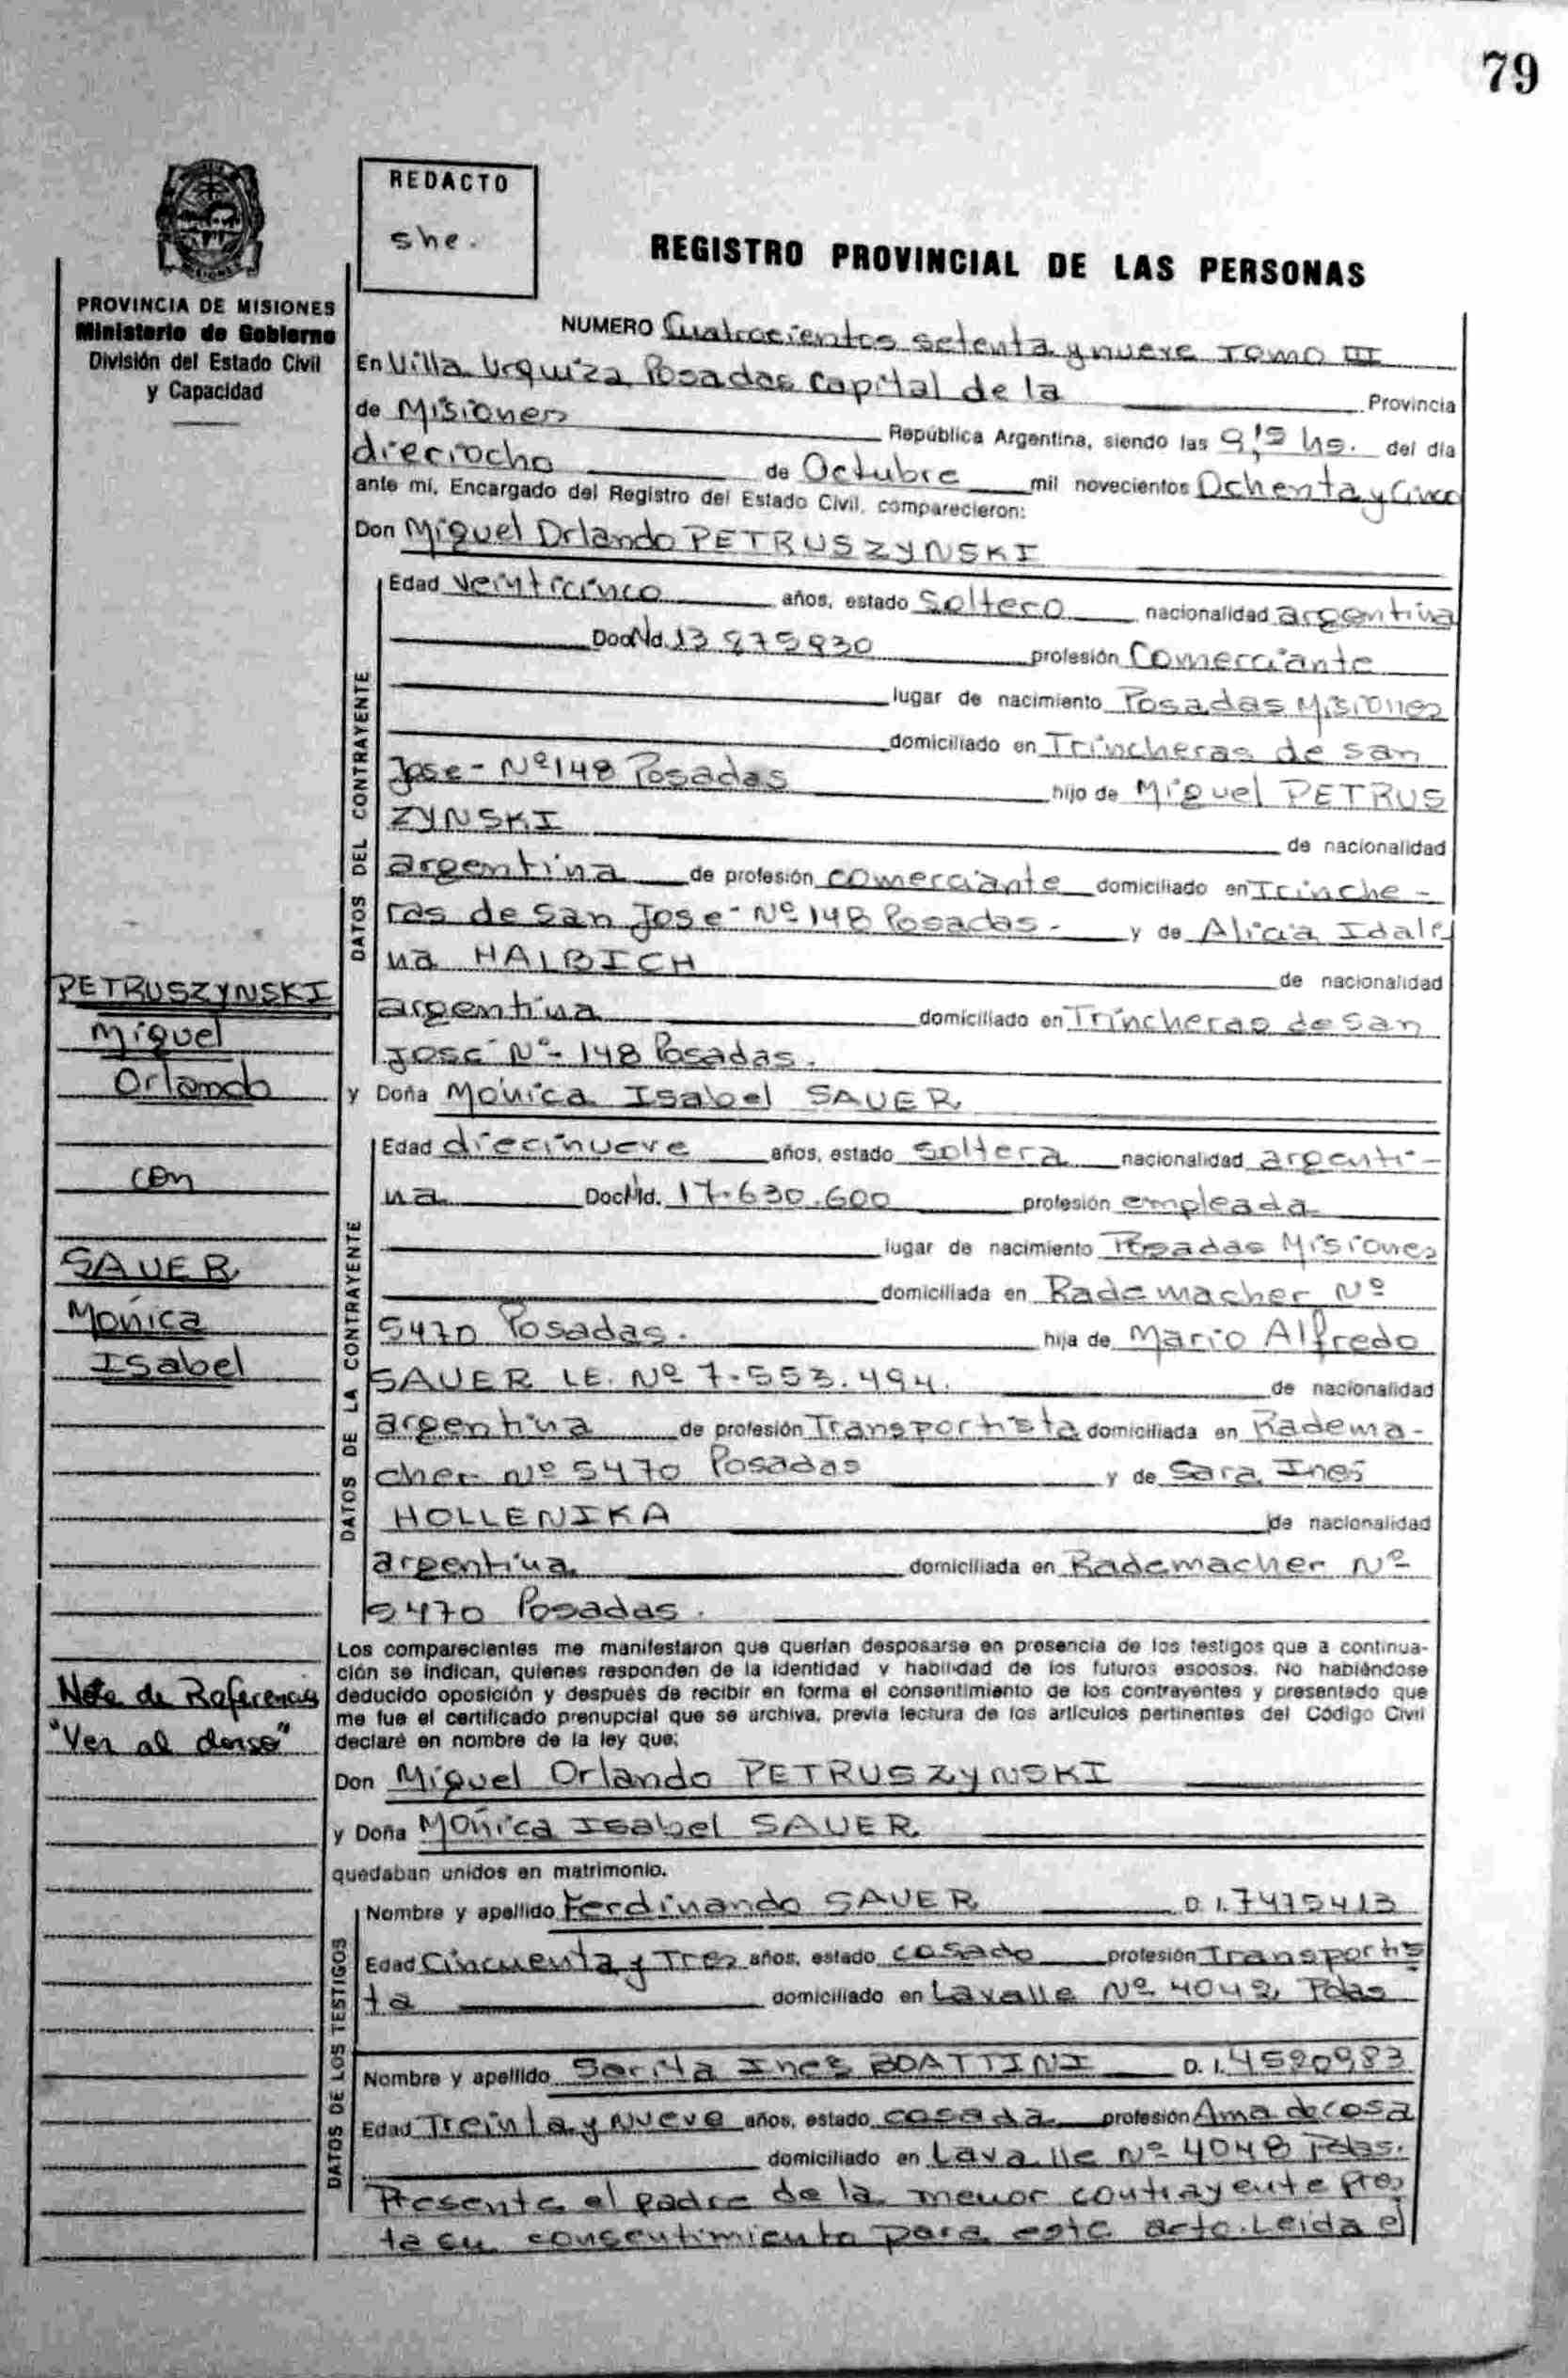 79
REDACTO
she.
REGISTRO PROVINCIAL DE LAS PERSONAS
PROVINCIA DE MISIONES
Ministerio de Gobierno
División del Estado Civil
y Capacidad
NUMERO Cuatrocientos setenta y nueve TOMO III
En Villa Urquiza Posadas Capital de la Provincia
de Misiones República Argentina, siendo las 9,15 hs. del día
dieciocho de Octubre mil novecientos Ochenta y Cinco
ante mí, Encargado del Registro del Estado Civil, comparecieron:
Don Miguel Orlando PETRUSZYNSKI
DATOS DEL CONTRAYENTE
Edad Veinticinco años, estado Soltero nacionalidad argentina
Doc Nd. 13 875830 profesión Comerciante
lugar de nacimiento Posadas Misiones
domiciliado en Trincheras de San
Jose- Nº148 Posadas hijo de Miguel PETRUS
ZYNSKI de nacionalidad
argentina de profesión comerciante domiciliado en Trinche-
ras de San Jose- Nº148 Posadas- y de Alicia Idali
na HALBICH de nacionalidad
argentina domiciliado en Trincheras de San
José Nº- 148 Posadas.
y Doña Mónica Isabel SAUER
DATOS DE LA CONTRAYENTE
Edad diecinueve años, estado Soltera nacionalidad argenti-
na Doc Nd. 17.630.600 profesión empleada
lugar de nacimiento Posadas Misiones
domiciliada en Rademacher Nº
5470 Posadas. hija de Mario Alfredo
SAUER LE. Nº 7.553.494. de nacionalidad
argentina de profesión Transportista domiciliada en Radema-
cher Nº 5470 Posadas y de Sara Inés
HOLLENIKA de nacionalidad
argentina domiciliada en Rademacher Nº
5470 Posadas.
PETRUSZYNSKI
Miguel
Orlando
con
SAUER
Mónica
Isabel
Nota de Referencias
"Ver al dorso"
Los comparecientes me manifestaron que querían desposarse en presencia de los testigos que a continua-
ción se indican, quienes responden de la identidad y habilidad de los futuros esposos. No habiéndose
deducido oposición y después de recibir en forma el consentimiento de los contrayentes y presentado que
me fue el certificado prenupcial que se archiva, previa lectura de los artículos pertinentes del Código Civil
declaré en nombre de la ley que;
Don Miguel Orlando PETRUSZYNSKI
y Doña Mónica Isabel SAUER
quedaban unidos en matrimonio.
DATOS DE LOS TESTIGOS
Nombre y apellido Ferdinando SAUER D. I. 7475413
Edad Cincuenta y Tres años, estado casado profesión Transportis
ta domiciliado en Lavalle Nº 4042 Pdas
Nombre y apellido Sarita Ines BOATTINI D. I. 4520983
Edad Treinta y Nueve años, estado casada profesión Ama de casa
domiciliado en Lavalle Nº 4048 Pdas.
Presente el padre de la menor contrayente pres
ta su consentimiento para este acto. Leída el